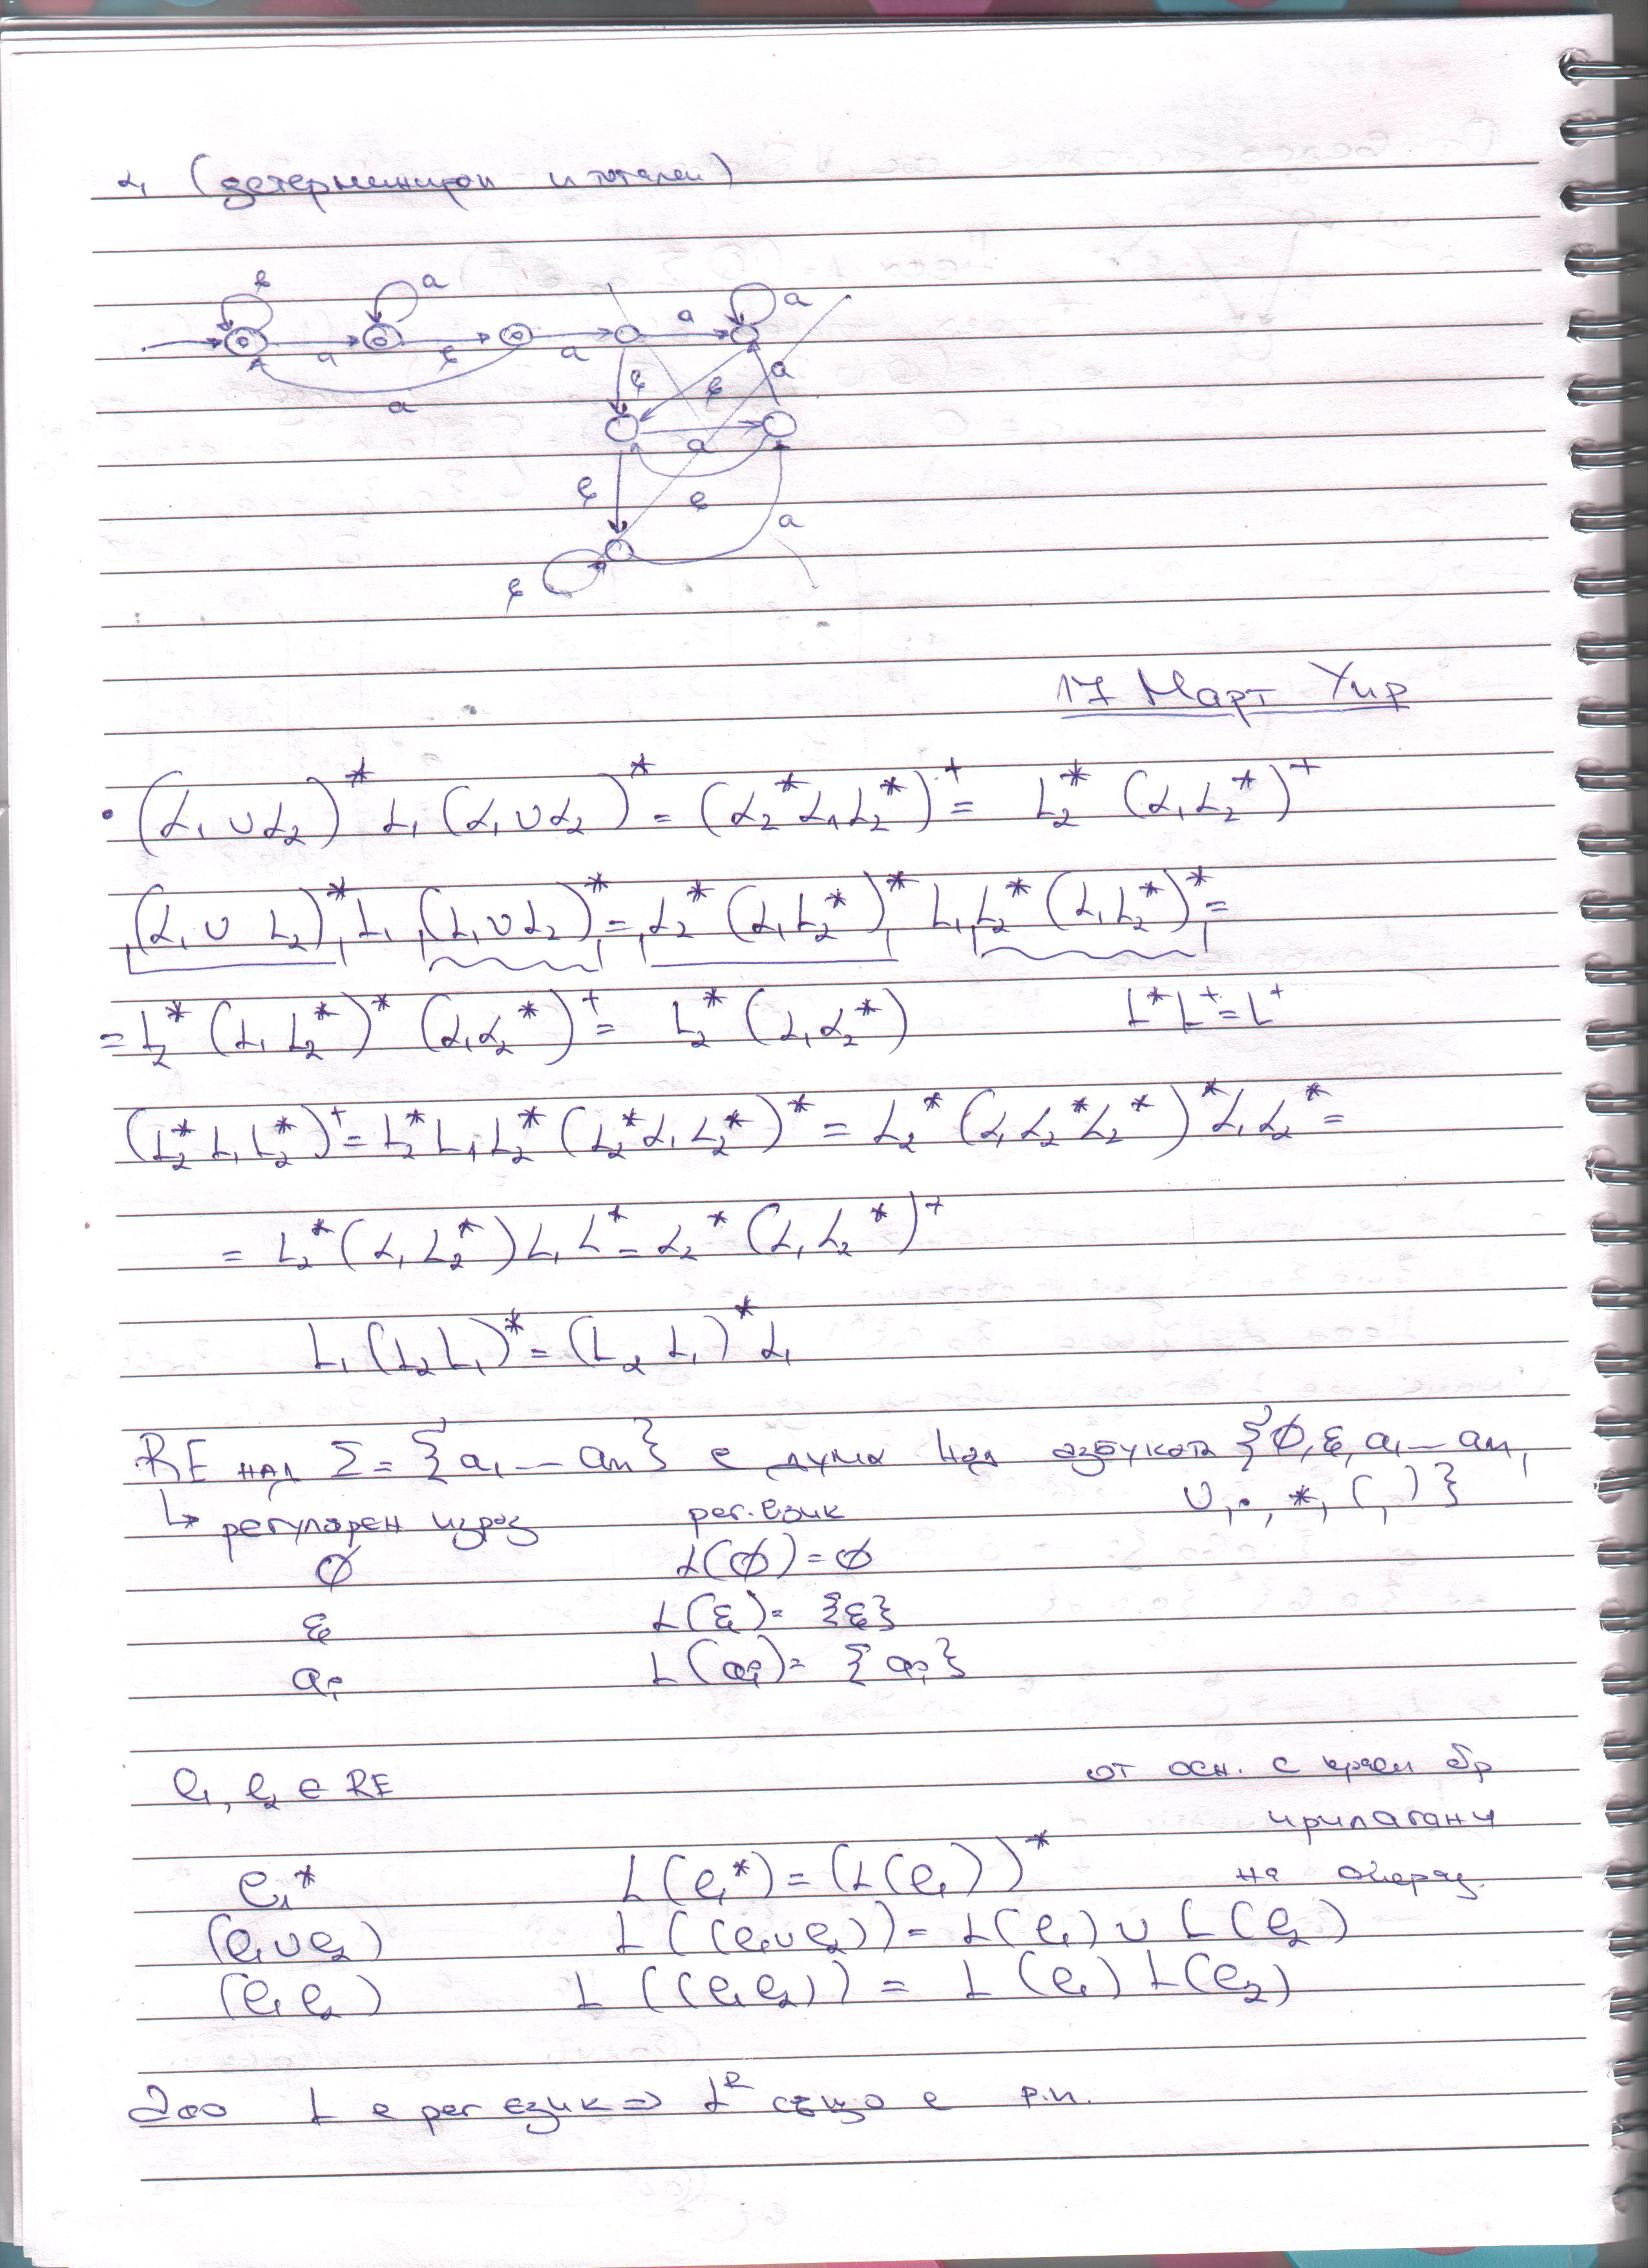 L₁ (детерминиран и тотален)
b a a
a b a
a b b a
a
b b a
b
17 Март Упр
• (L₁ ∪ L₂)* L₁ (L₁ ∪ L₂)* = (L₂* L₁ L₂*)⁺ = L₂* (L₁ L₂*)⁺
(L₁ ∪ L₂)* L₁ (L₁ ∪ L₂)* = L₂* (L₁ L₂*)* L₁ L₂* (L₁ L₂*)* =
= L₂* (L₁ L₂*)* (L₁ L₂*)⁺ = L₂* (L₁ L₂*) L* L⁺ = L⁺
(L₂* L₁ L₂*)⁺ = L₂* L₁ L₂* (L₂* L₁ L₂*)* = L₂* (L₁ L₂* L₂*)* L₁ L₂* =
= L₂* (L₁ L₂*) L₁ L* = L₂* (L₁ L₂*)⁺
L₁ (L₂ L₁)* = (L₂ L₁)* L₁
RE над Σ = {a₁ ... aₙ} е дума над азбуката {∅, ε, a₁ ... aₙ,
∪, •, *, (, )}
↳ регулярен израз рег. език
∅ L(∅) = ∅
ε L(ε) = {ε}
aᵢ L(aᵢ) = {aᵢ}
e₁, e₂ ∈ RE от осн. с краен бр
прилагани
e₁* L(e₁*) = (L(e₁))* на операц.
(e₁ ∪ e₂) L((e₁ ∪ e₂)) = L(e₁) ∪ L(e₂)
(e₁ e₂) L((e₁ e₂)) = L(e₁) L(e₂)
L е рег език => Lᴿ също е р.и.